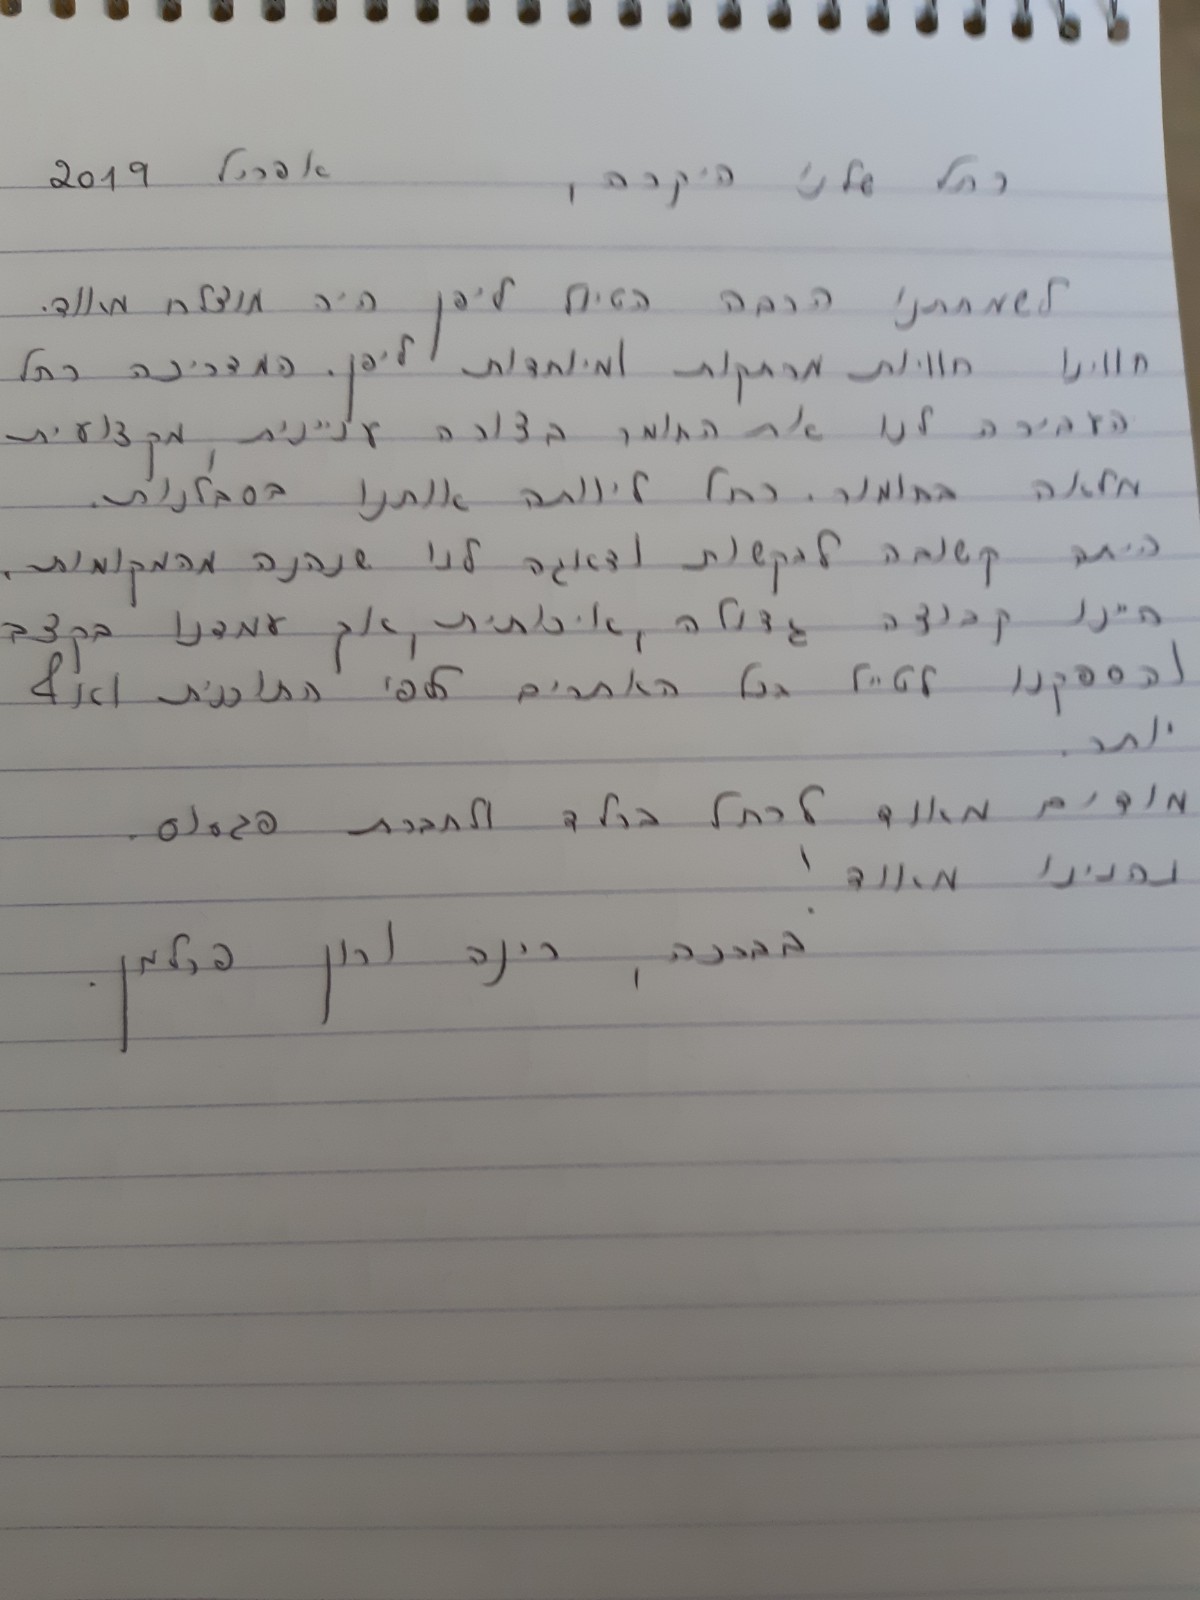 רחל שלנו היקרה, אפריל 2019
לשמחתנו הרבה הטיול ליפן היה מוצלח מאוד.
חווינו חוויות מרתקות ומיוחדות ליפן. המדריכה רחל
העבירה לנו את החומר בצורה עניינית, מקצועית
מלאה בחומר. רחל ליוותה אותנו בסבלנות.
היתה קשובה לבקשות ודאגה לנו שנהנה מהמקומות.
היינו קבוצה גדולה, איכותית, אך עמדנו בקצב
והספקנו לטייל בכל האתרים לפי התוכנית ואף
יותר.
מודים מאוד לרחל ברלד ולחברת פגסוס.
נהנינו מאוד!
בברכה, רינה ורון פרלמן.